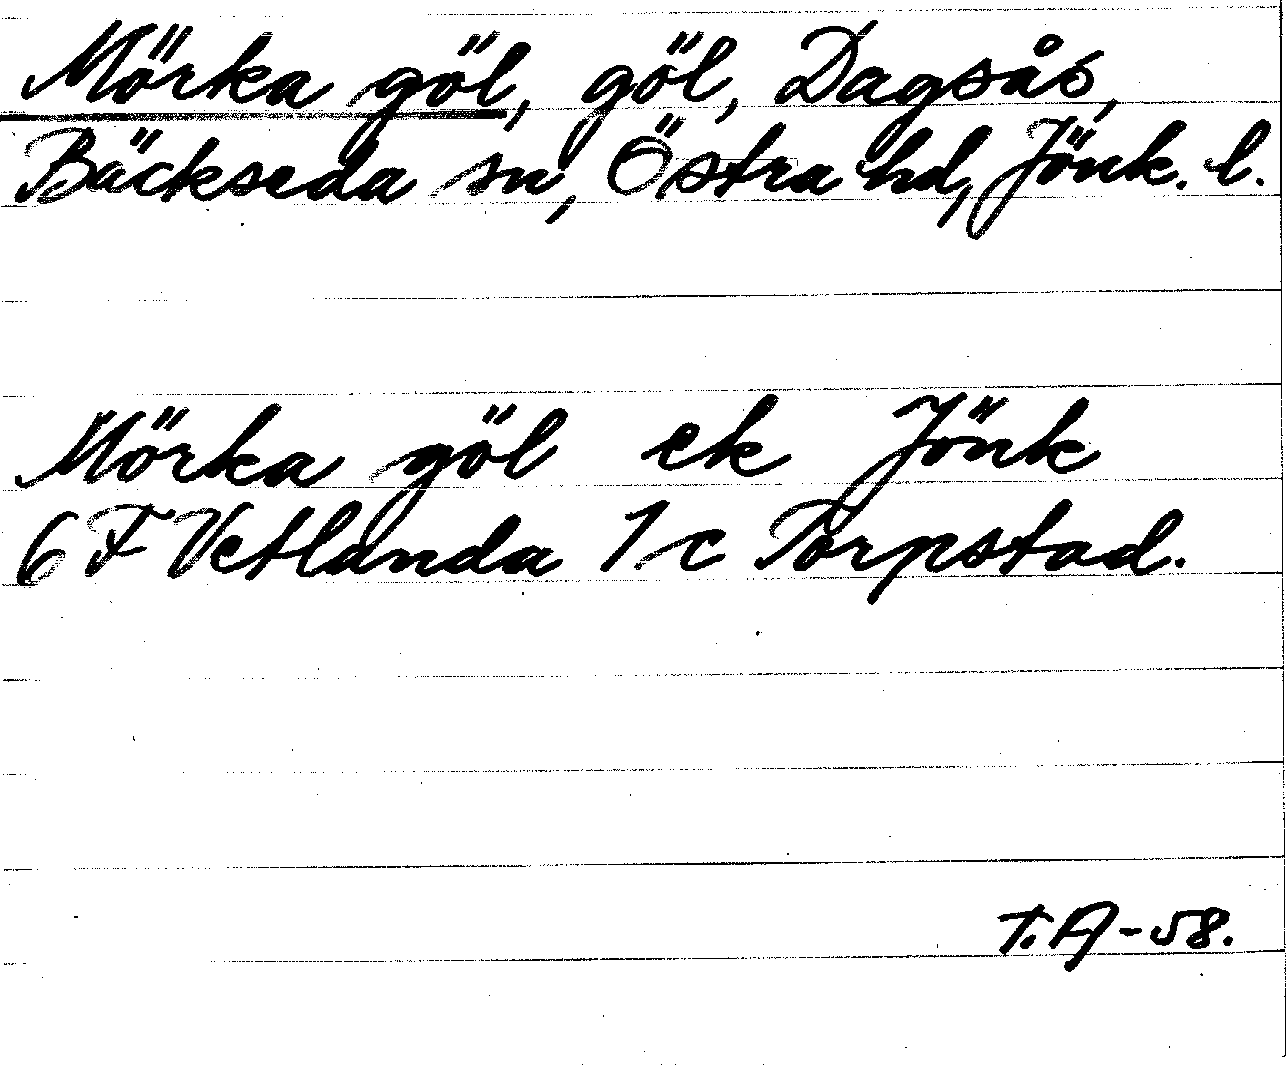 Mörka göl, göl, Dagsås,
Bäckseda sn, Östra hd, Jönk. l.
Mörka göl ek Jönk
6 F Vetlanda 1 c Torpstad.
T.A-58.